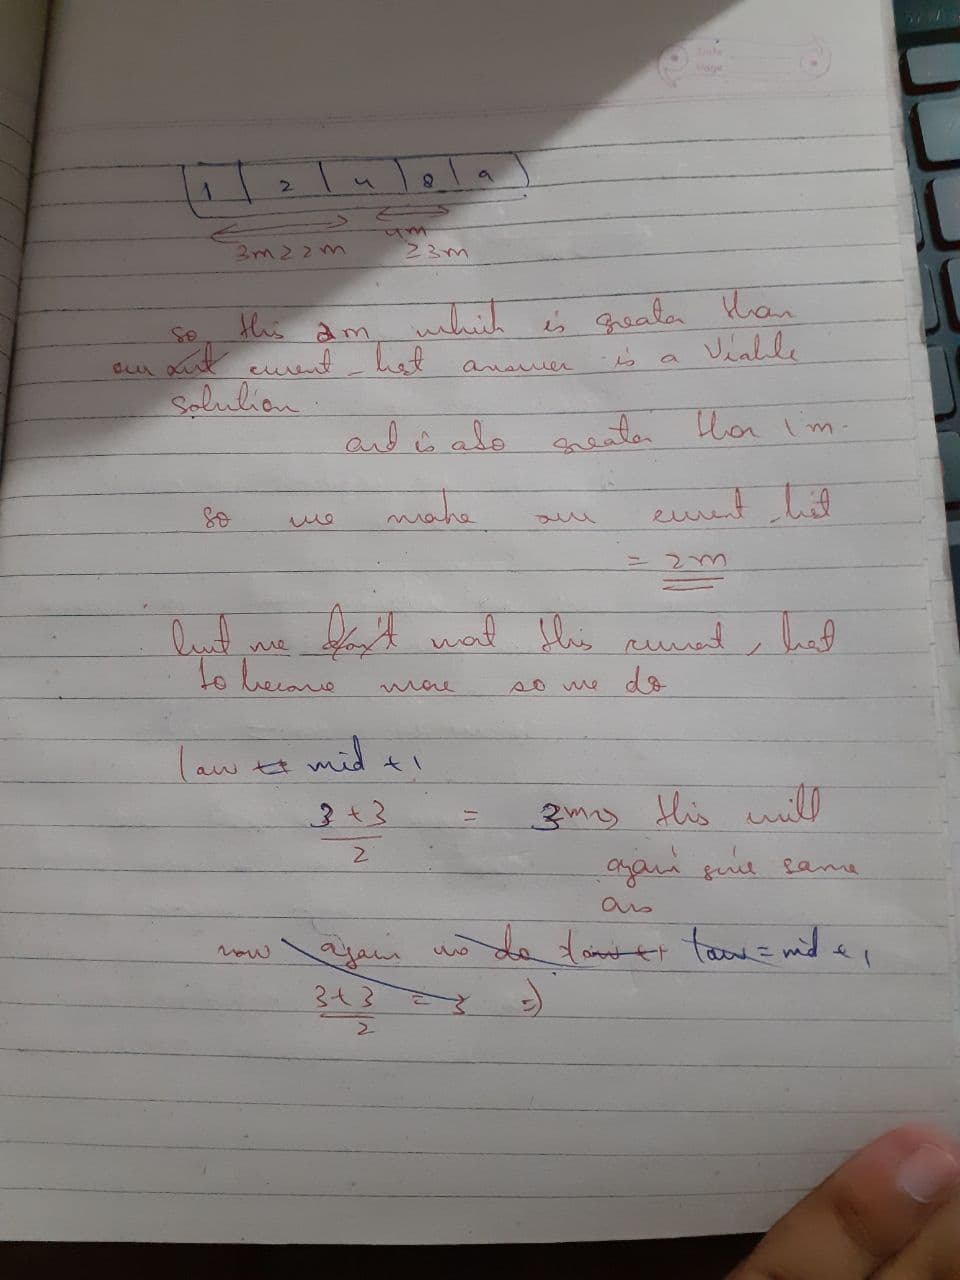 Date
Page
1 | 2 | 4 | 8 | 9
3m ≥ 2m 4m ≥ 3m
so this 2m which is greater than
our current best answer is a viable
solution.
and is also greater than 1m.
so we make our current best
= 2m
but we don't want this current best
to become more so we do
low mid + 1
3 + 3 / 2 = 3m → this will
again give same
ans
now again we do low = mid + 1
3 + 3 / 2 = 3 ⇒